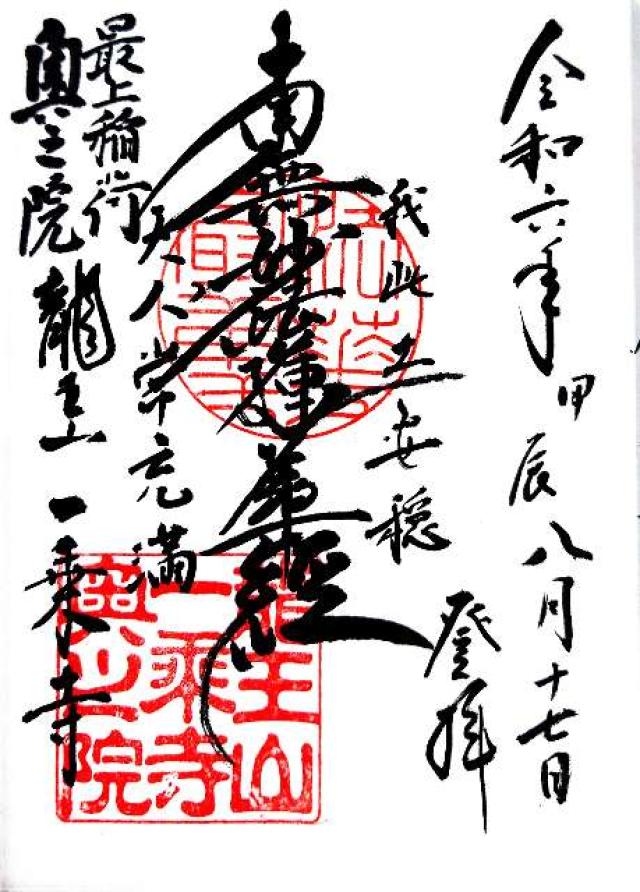 令和六年甲辰八月十七日
登拝
我此土安穏
南無妙法蓮華経
天人常充満
最上稲荷
奥之院龍王山一乗寺
龍王山
一乘寺
奥之院